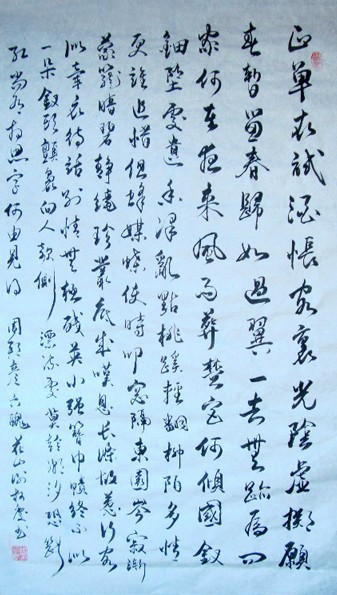 正單衣試酒悵客裏光陰虛擲願
春暫留春歸如過翼一去無跡為問
家何在夜來風雨葬楚宮何傾國釵
鈿墜處遺香澤亂點桃蹊輕翻柳陌多情
更誰追惜但蜂媒蝶使時叩窗隔東園岑寂漸
蒙籠暗碧靜繞珍叢底成嘆息長條故惹行客
似牽衣待話別情無極殘英小強簪巾幘終不似
一朵釵頭顫裊向人欹側漂流處莫趁潮汐恐斷
紅尚有相思字何由見得 周邦彥六醜 書